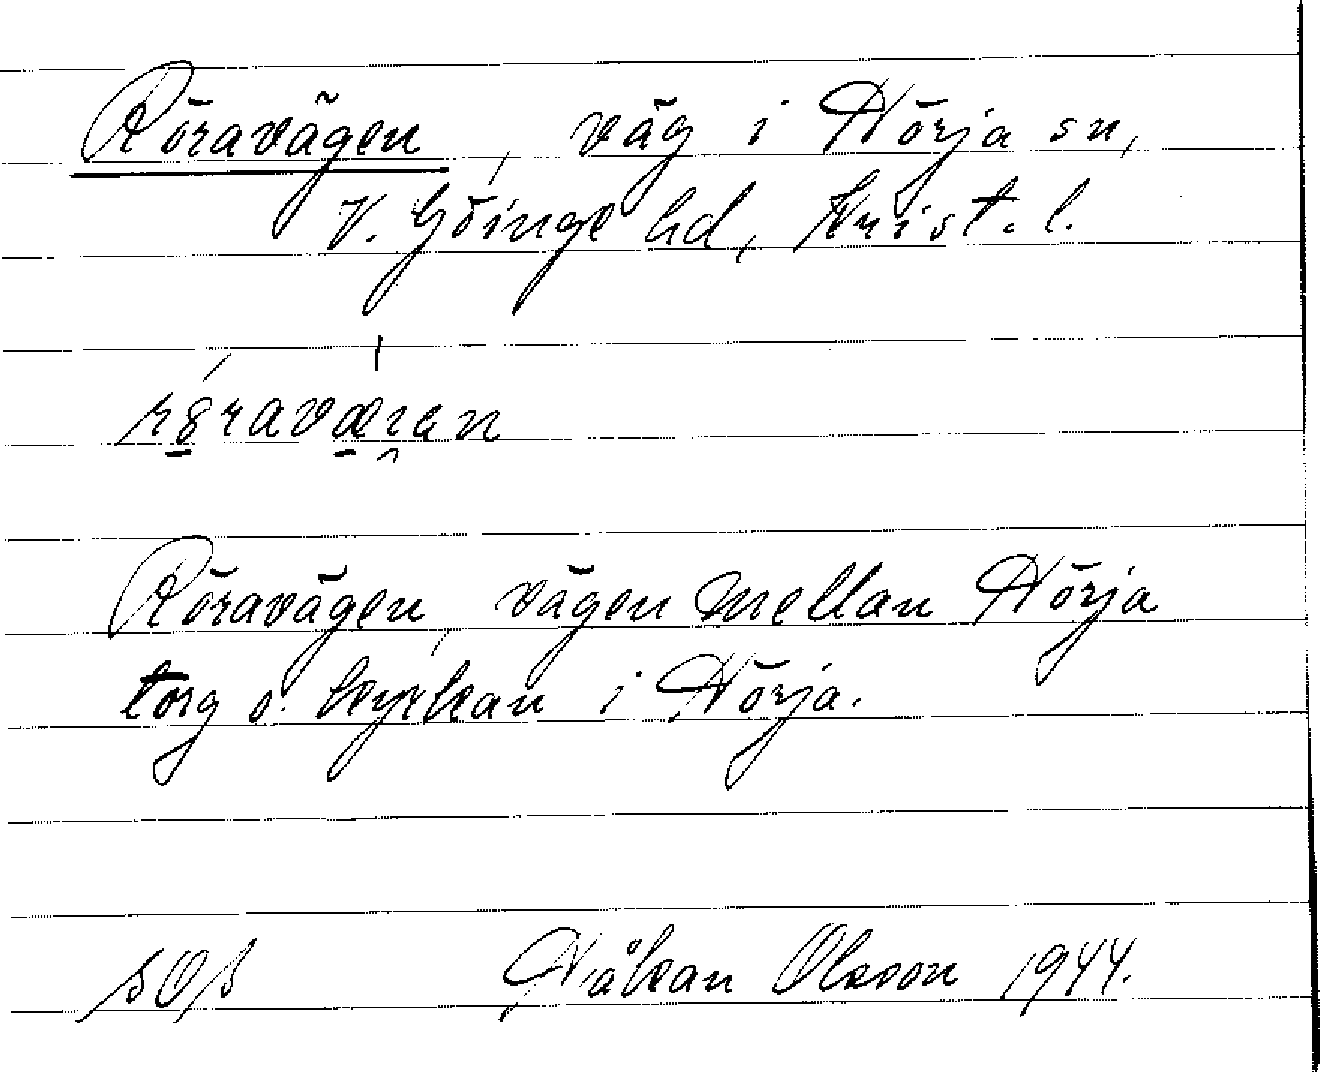 Röravägen, väg i Hörja sn,
V. Göinge hd, Krist. l.
Röravägen, vägen mellan Hörja
torg o. kyrkan i Hörja.
Håkan Olsson 1944.